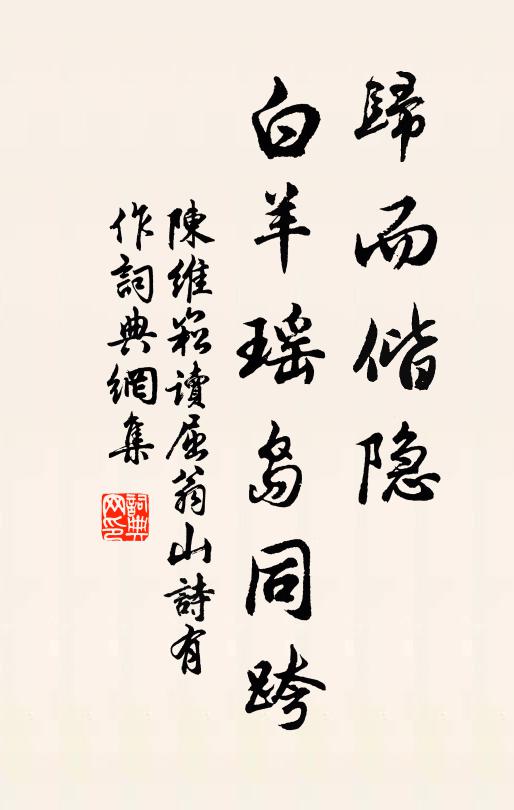 歸而偕隐
白羊瑶岛同跨
陳維崧讀屈翁山詩有
作詞典網集
詞典网印